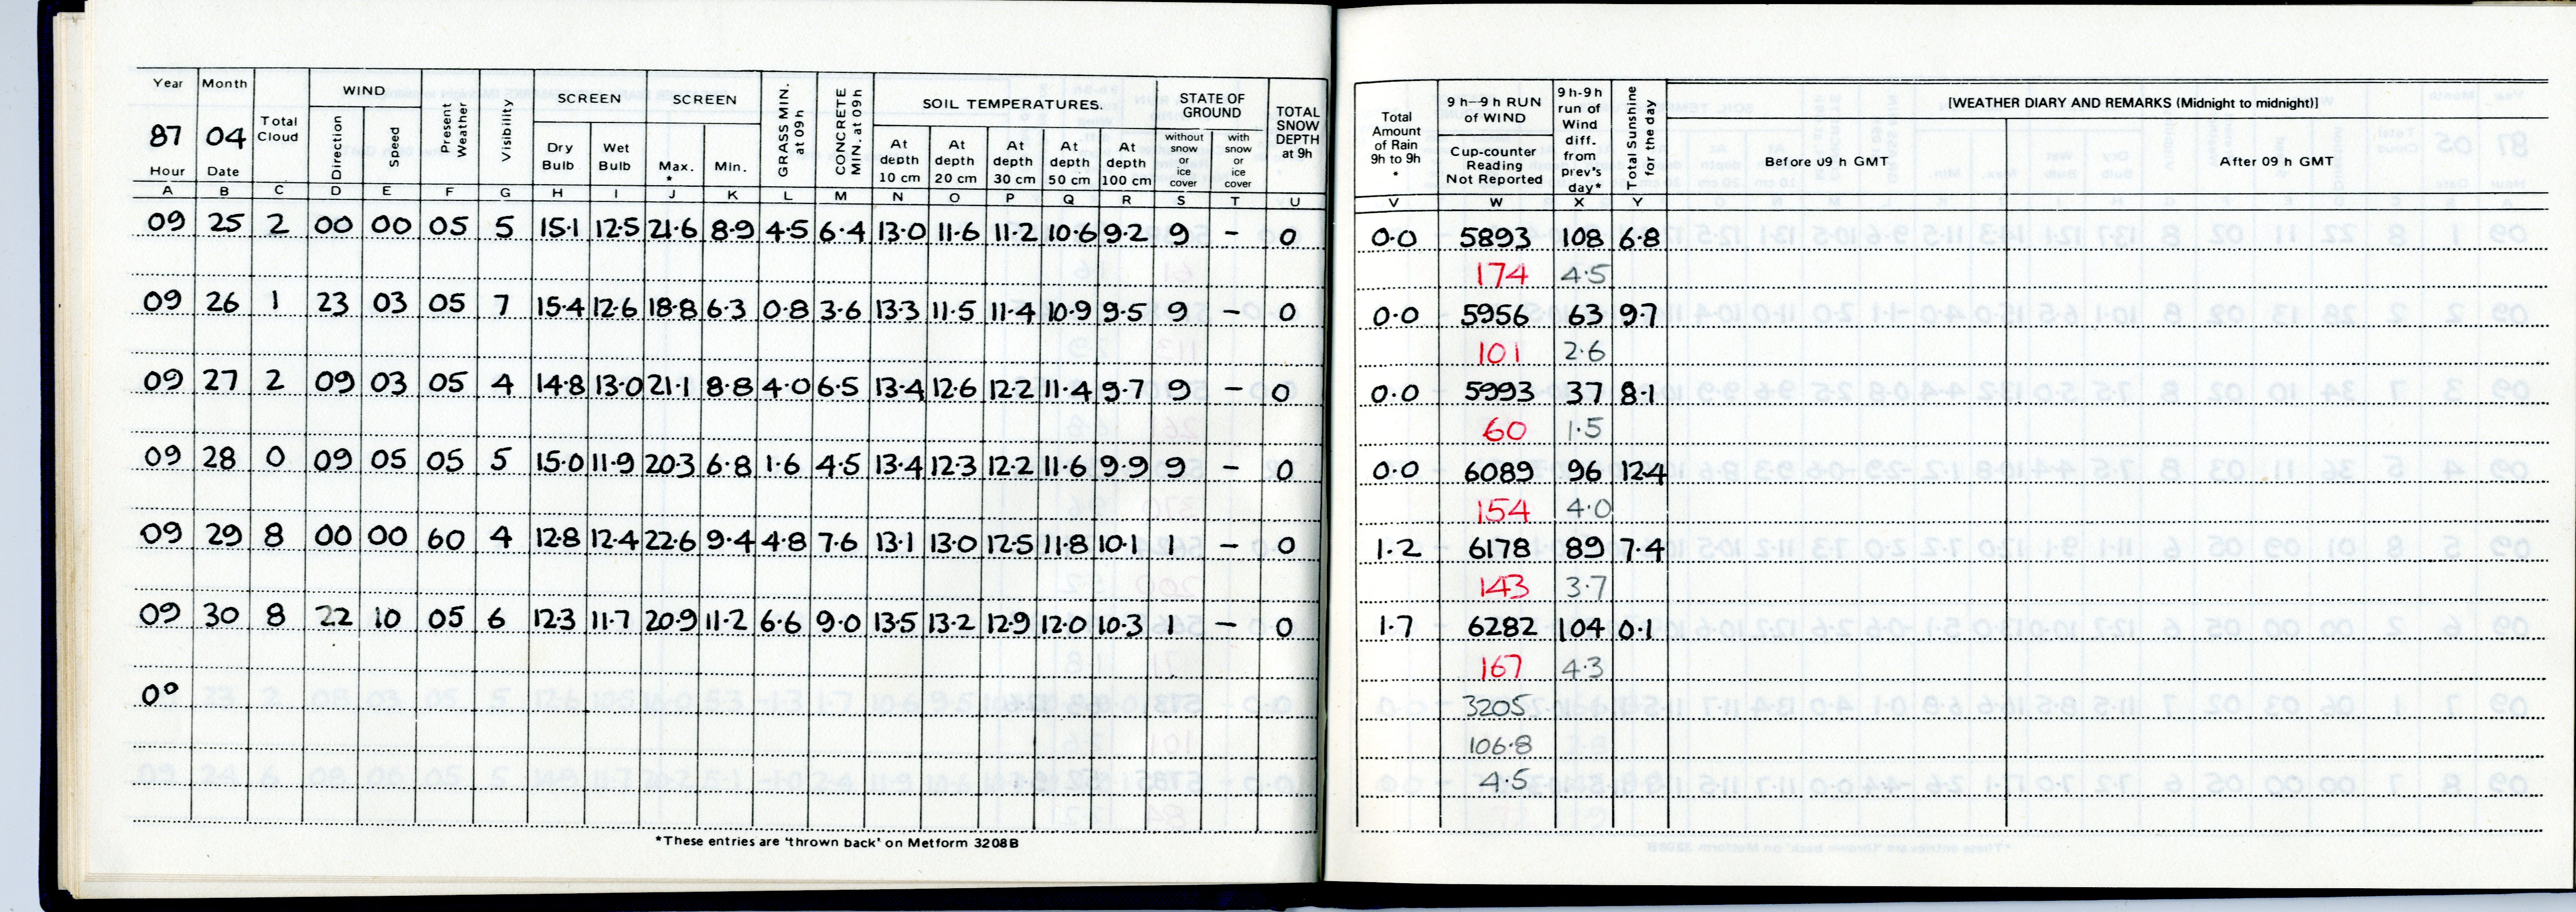 Year Month Total Cloud WIND Present Weather Visibility SCREEN SCREEN GRASS MIN. at 09h CONCRETE MIN. at 09h SOIL TEMPERATURES. STATE OF GROUND TOTAL SNOW DEPTH at 9h
87 04 Direction Speed Dry Bulb Wet Bulb Max. * Min. At depth 10 cm At depth 20 cm At depth 30 cm At depth 50 cm At depth 100 cm without snow or ice cover with snow or ice cover
Hour Date
A B C D E F G H I J K L M N O P Q R S T U
09 25 2 00 00 05 5 15.1 12.5 21.6 8.9 4.5 6.4 13.0 11.6 11.2 10.6 9.2 9 – 0
09 26 1 23 03 05 7 15.4 12.6 18.8 6.3 0.8 3.6 13.3 11.5 11.4 10.9 9.5 9 – 0
09 27 2 09 03 05 4 14.8 13.0 21.1 8.8 4.0 6.5 13.4 12.6 12.2 11.4 9.7 9 – 0
09 28 0 09 05 05 5 15.0 11.9 20.3 6.8 1.6 4.5 13.4 12.3 12.2 11.6 9.9 9 – 0
09 29 8 00 00 60 4 12.8 12.4 22.6 9.4 4.8 7.6 13.1 13.0 12.5 11.8 10.1 1 – 0
09 30 8 22 10 05 6 12.3 11.7 20.9 11.2 6.6 9.0 13.5 13.2 12.9 12.0 10.3 1 – 0
0°
*These entries are 'thrown back' on Metform 3208B
Total Amount of Rain 9h to 9h * 9h–9h RUN of WIND Cup-counter Reading Not Reported 9h-9h run of Wind diff. from prev's day* Total Sunshine for the day [WEATHER DIARY AND REMARKS (Midnight to midnight)]
Before 09 h GMT After 09 h GMT
V W X Y
0.0 5893 108 6.8
174 4.5
0.0 5956 63 9.7
101 2.6
0.0 5993 37 8.1
60 1.5
0.0 6089 96 12.4
154 4.0
1.2 6178 89 7.4
143 3.7
1.7 6282 104 0.1
167 4.3
3205
106.8
4.5